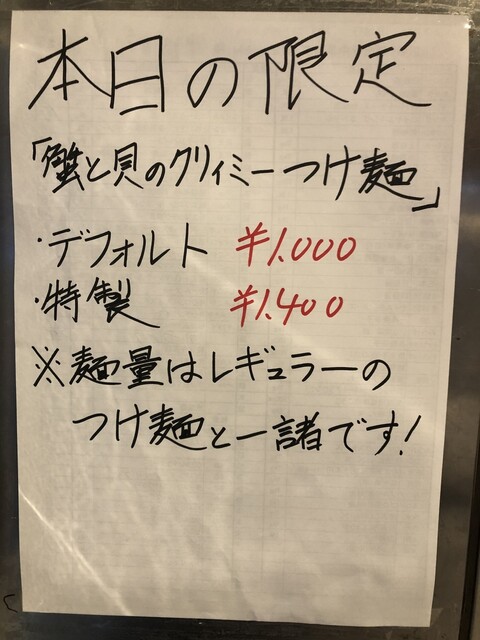 本日の限定
「蟹と貝のクリィミーつけ麺」
・デフォルト ¥1.000
・特製 ¥1.400
※麺量はレギュラーの
つけ麺と一諸です!